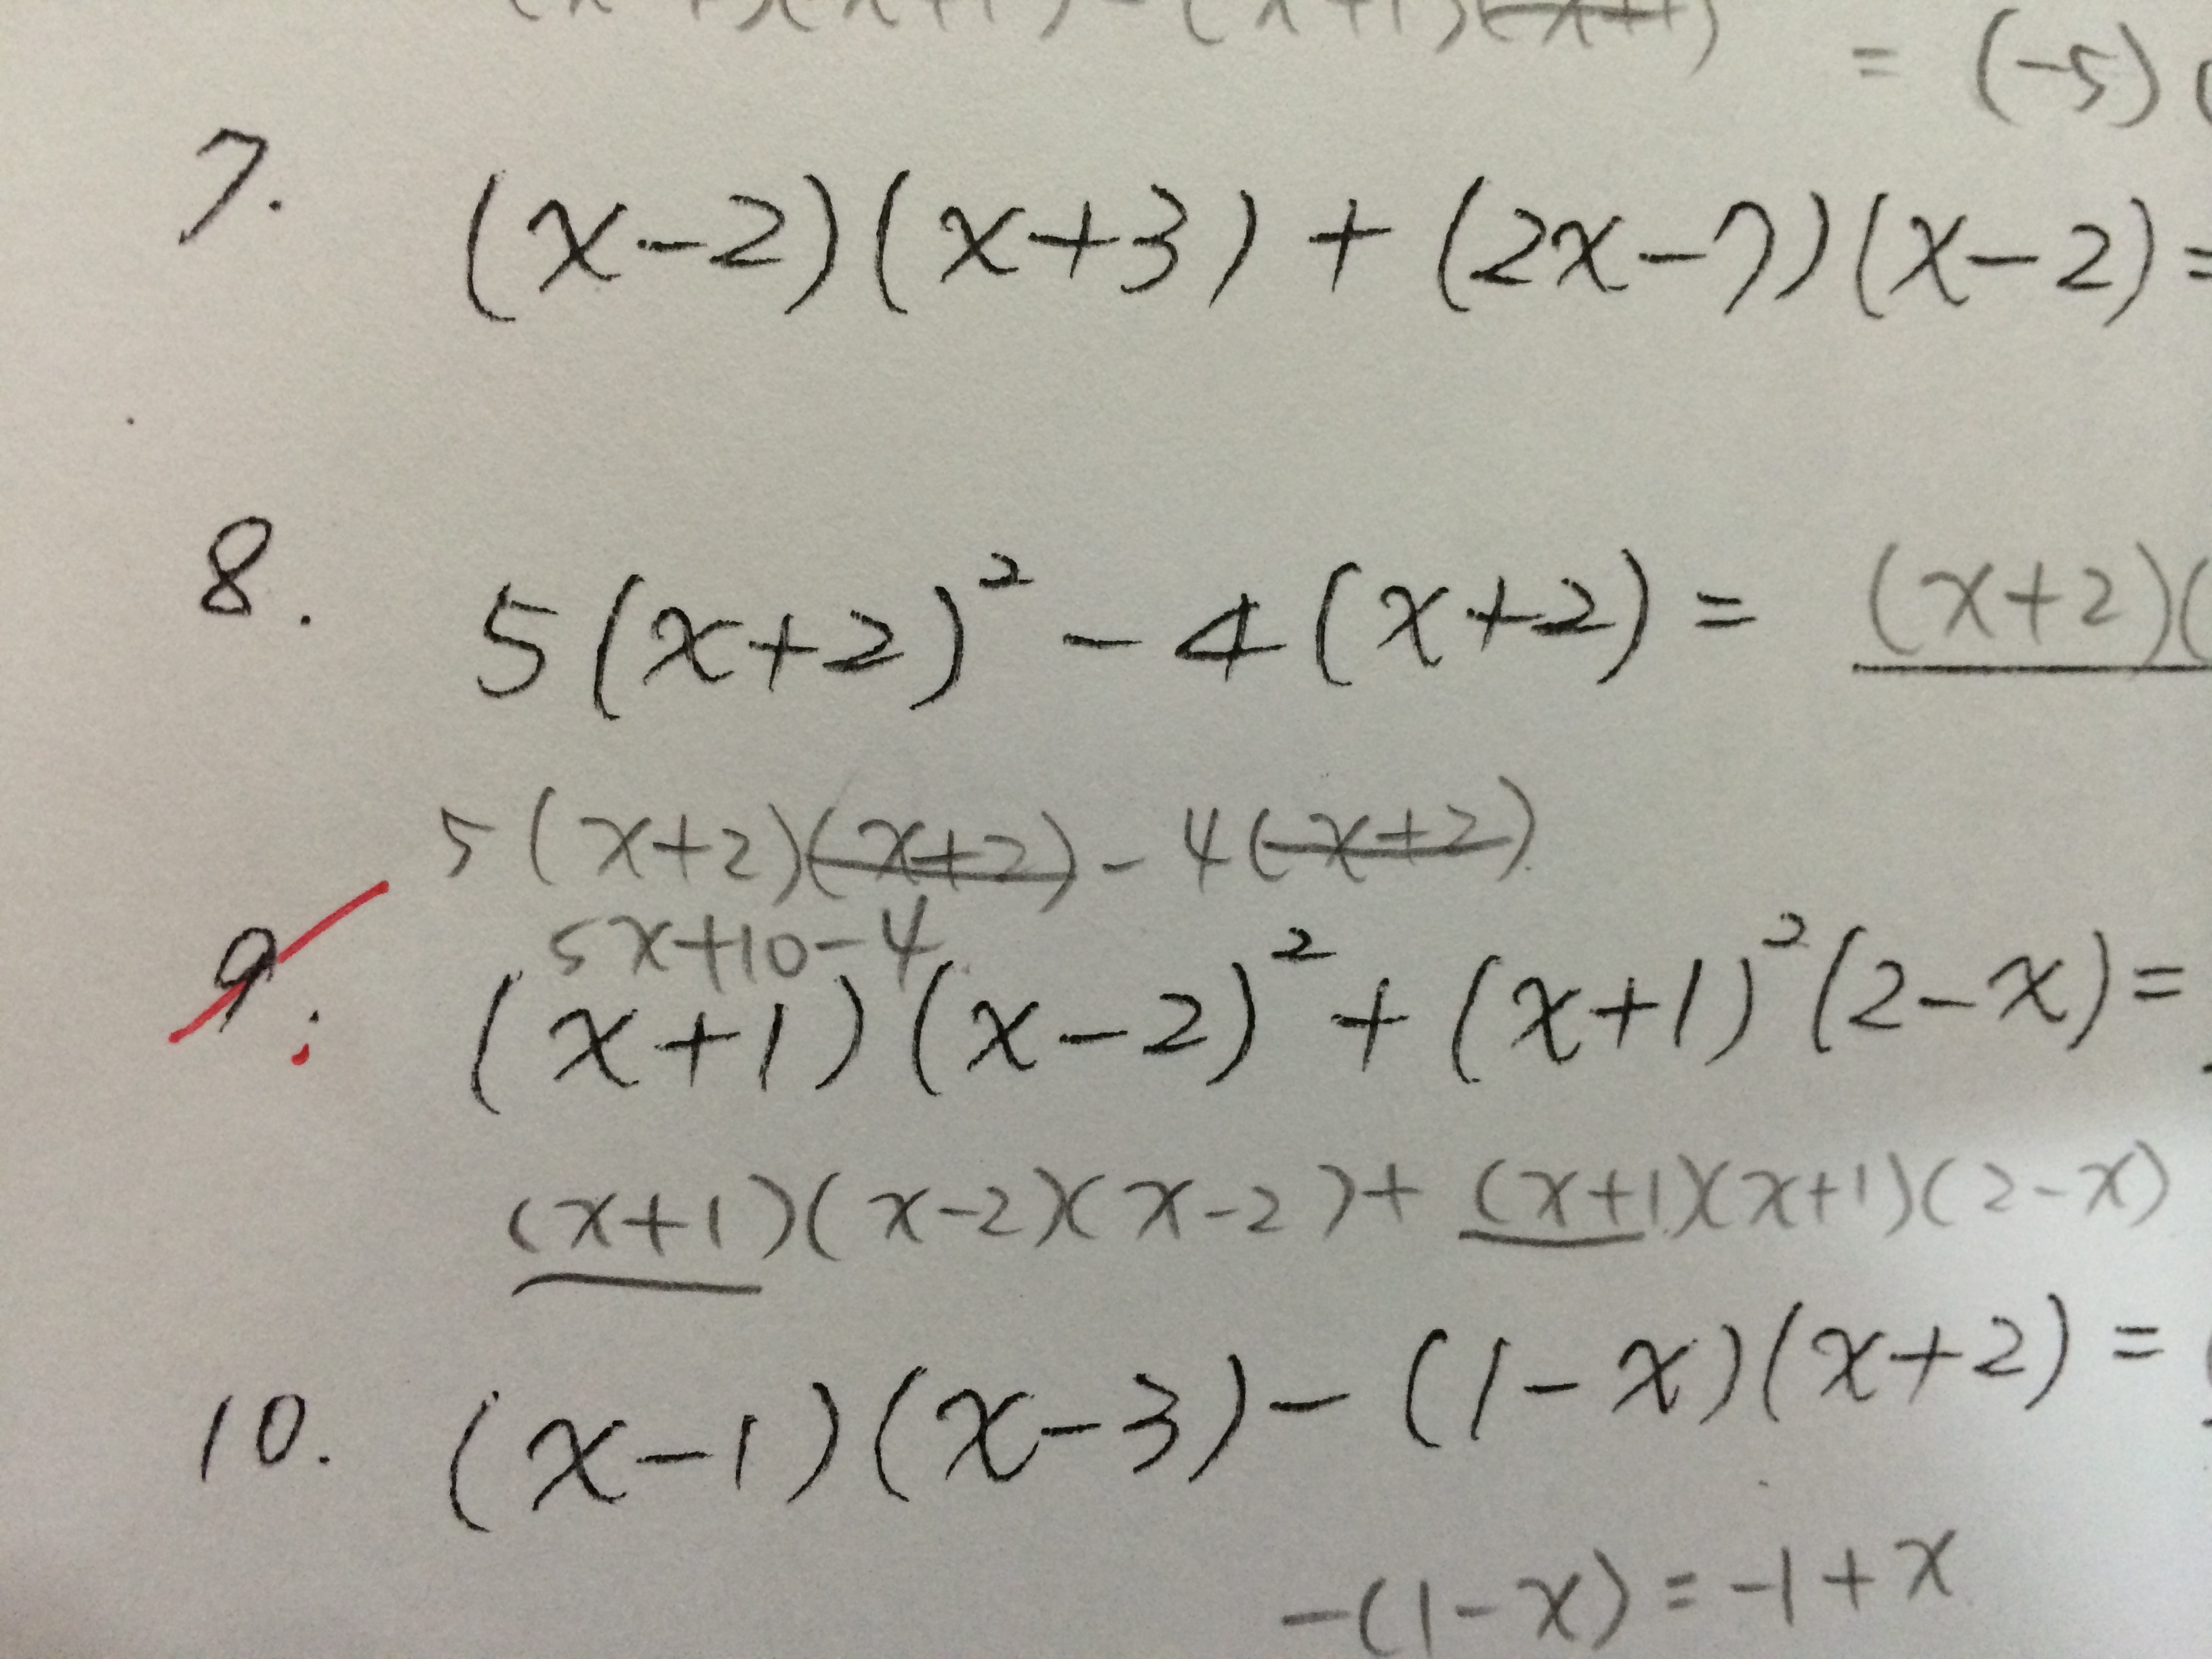 = (-5)
7. (x-2)(x+3)+(2x-7)(x-2)=
8. 5(x+2)²-4(x+2)= (x+2)(
5(x+2)(x+2)-4(x+2)
5x+10-4
9. (x+1)(x-2)²+(x+1)²(2-x)=
(x+1)(x-2)(x-2)+(x+1)(x+1)(2-x)
10. (x-1)(x-3)-(1-x)(x+2)=
-(1-x)=-1+x